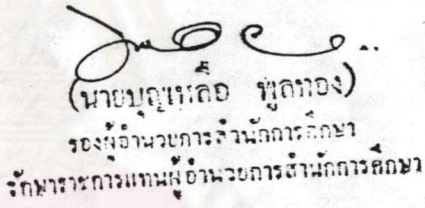 (นายบุญเหลือ พูลทอง)
รองผู้อำนวยการสำนักการศึกษา
รักษาราชการแทนผู้อำนวยการสำนักการศึกษา